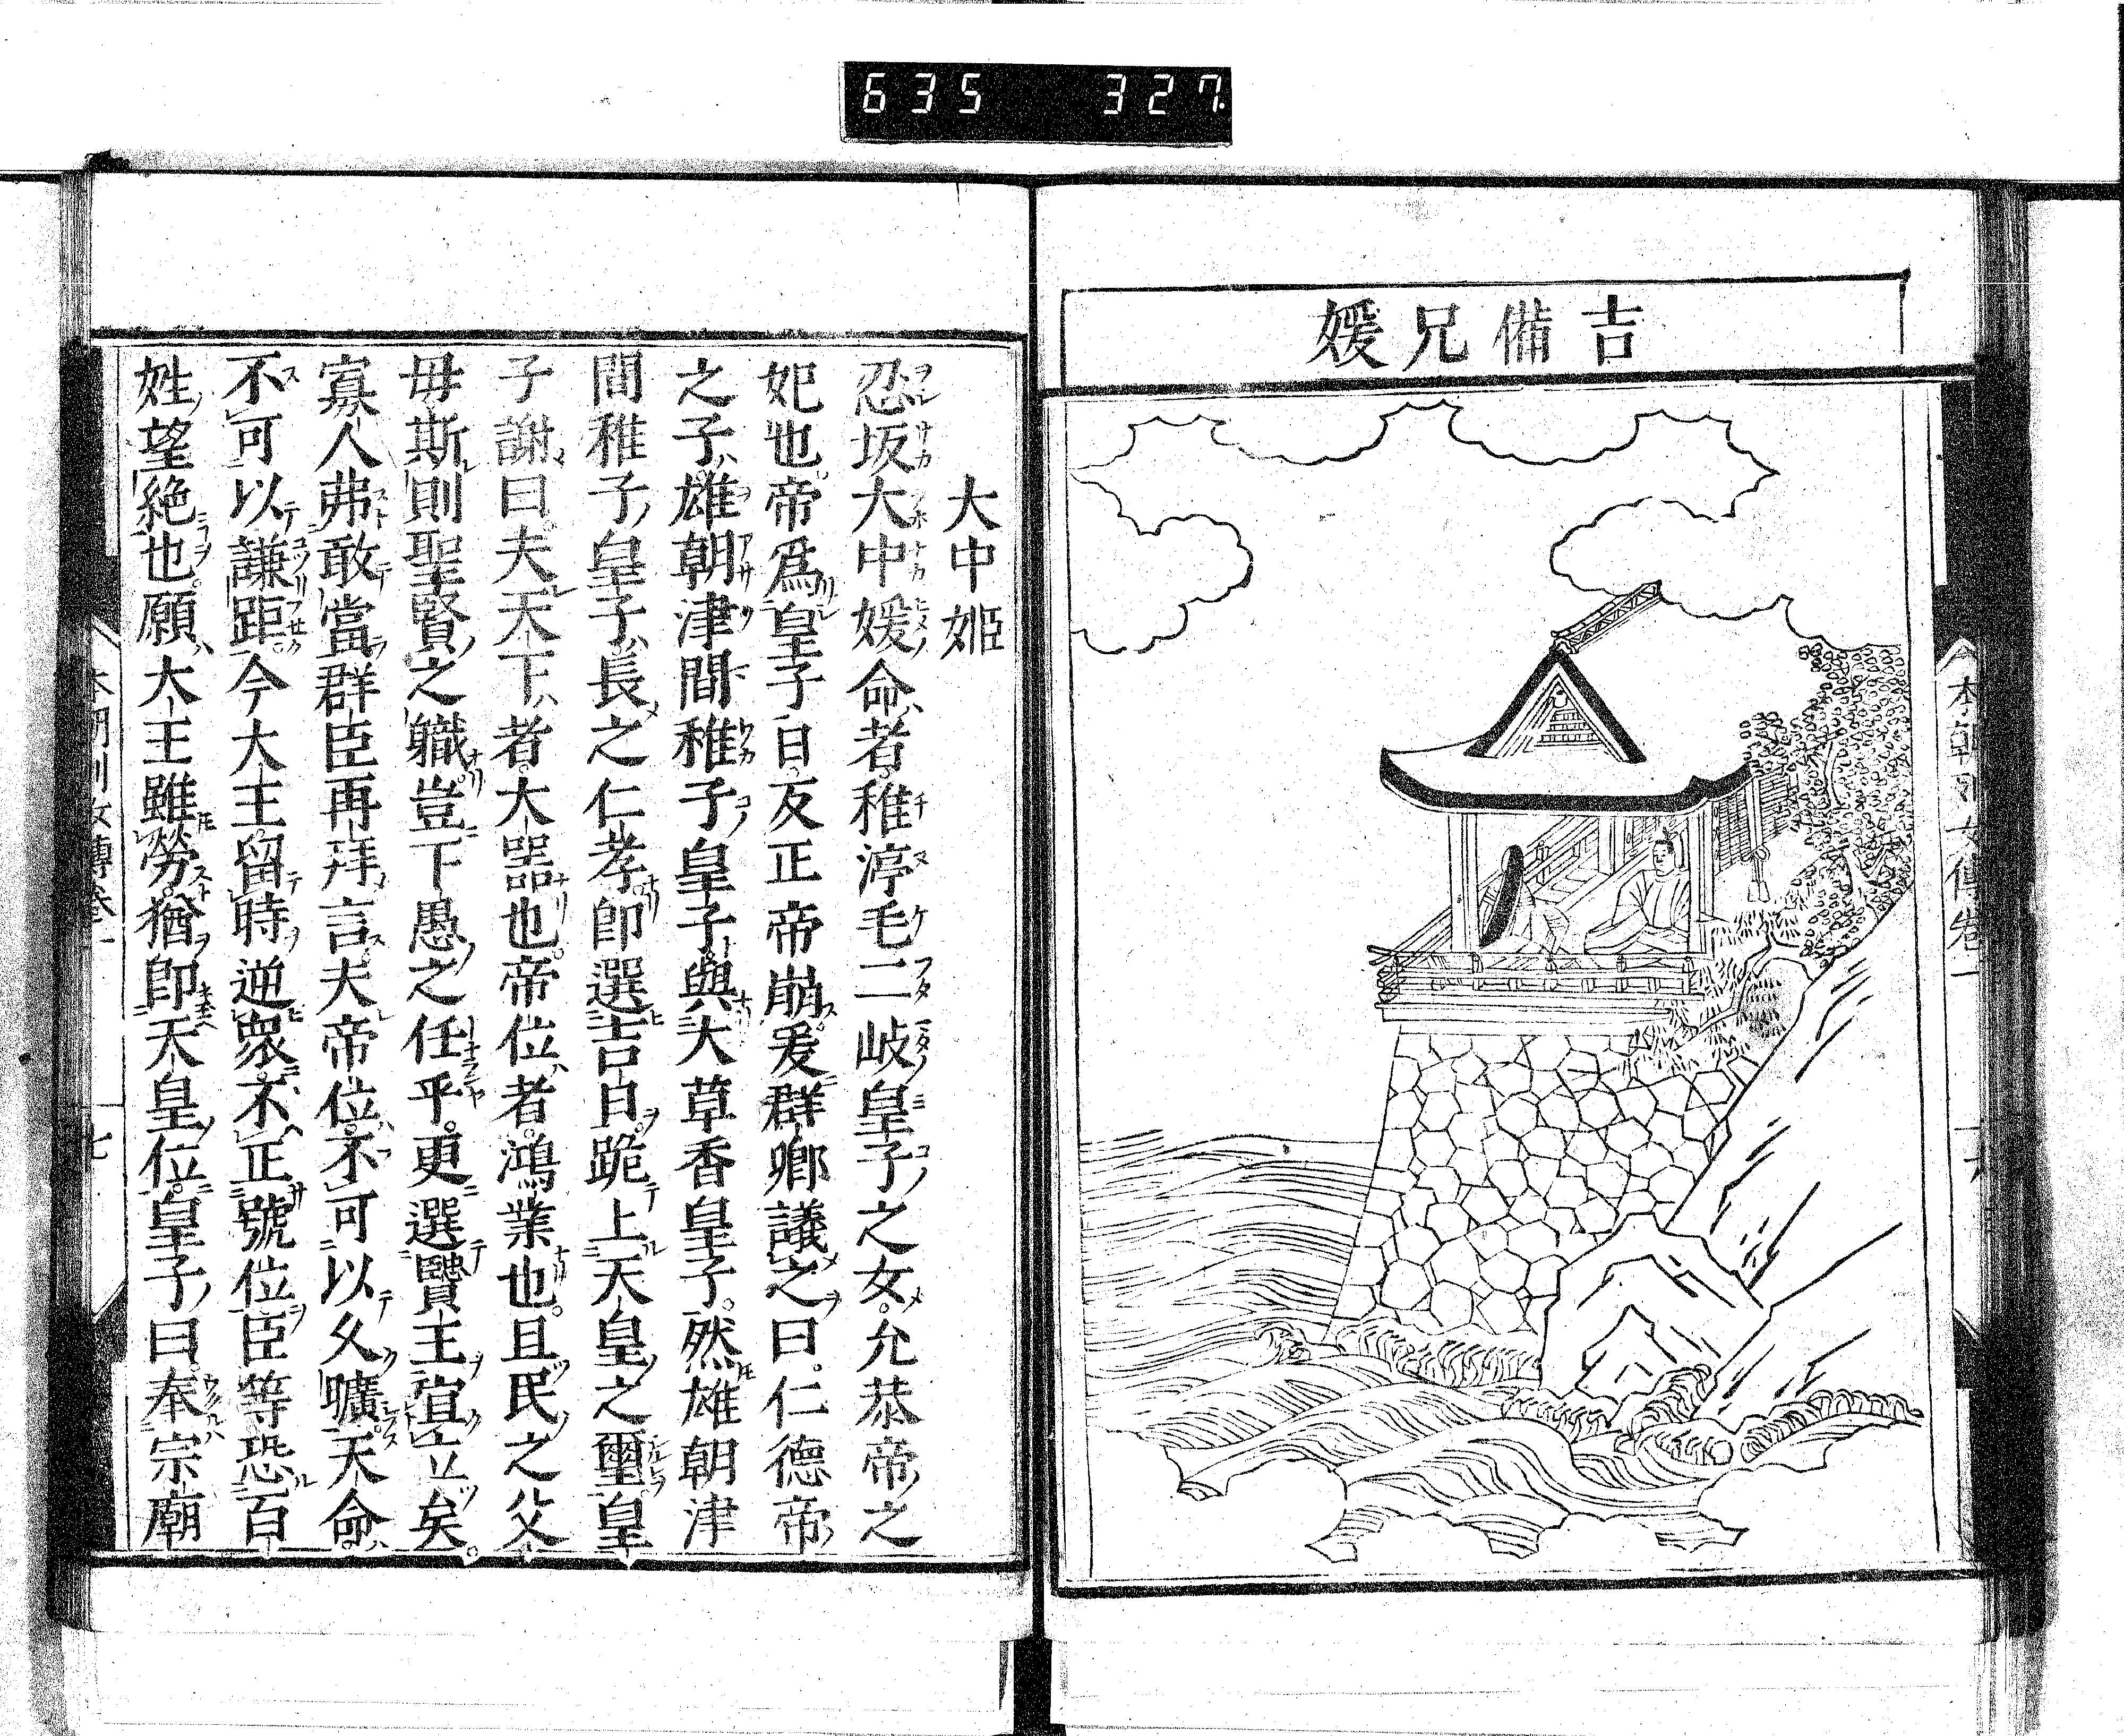 635 327.
吉備兄媛
本朝列女傳卷一
大中姬
忍坂大中媛命者。稚渟毛二岐皇子之女。允恭帝之
妃也。帝爲皇子日。反正帝崩。爰群卿議之曰。仁德帝
之子。雄朝津間稚子皇子。與大草香皇子。然雄朝津
間稚子皇子。長之仁孝。卽選吉日。跪上天皇之璽。皇
子謝曰。夫天下者。大器也。帝位者。鴻業也。且民之父
母。斯則聖賢之職。豈下愚之任乎。更選賢王宜立矣。
寡人弗敢當。群臣再拜言。夫帝位。不可以久曠。天命。
不可以謙距。今大王留時逆衆。不正號位。臣等恐百
姓望絶也。願大王雖勞。猶卽天皇位。皇子曰。奉宗廟
本朝列女傳卷一 七